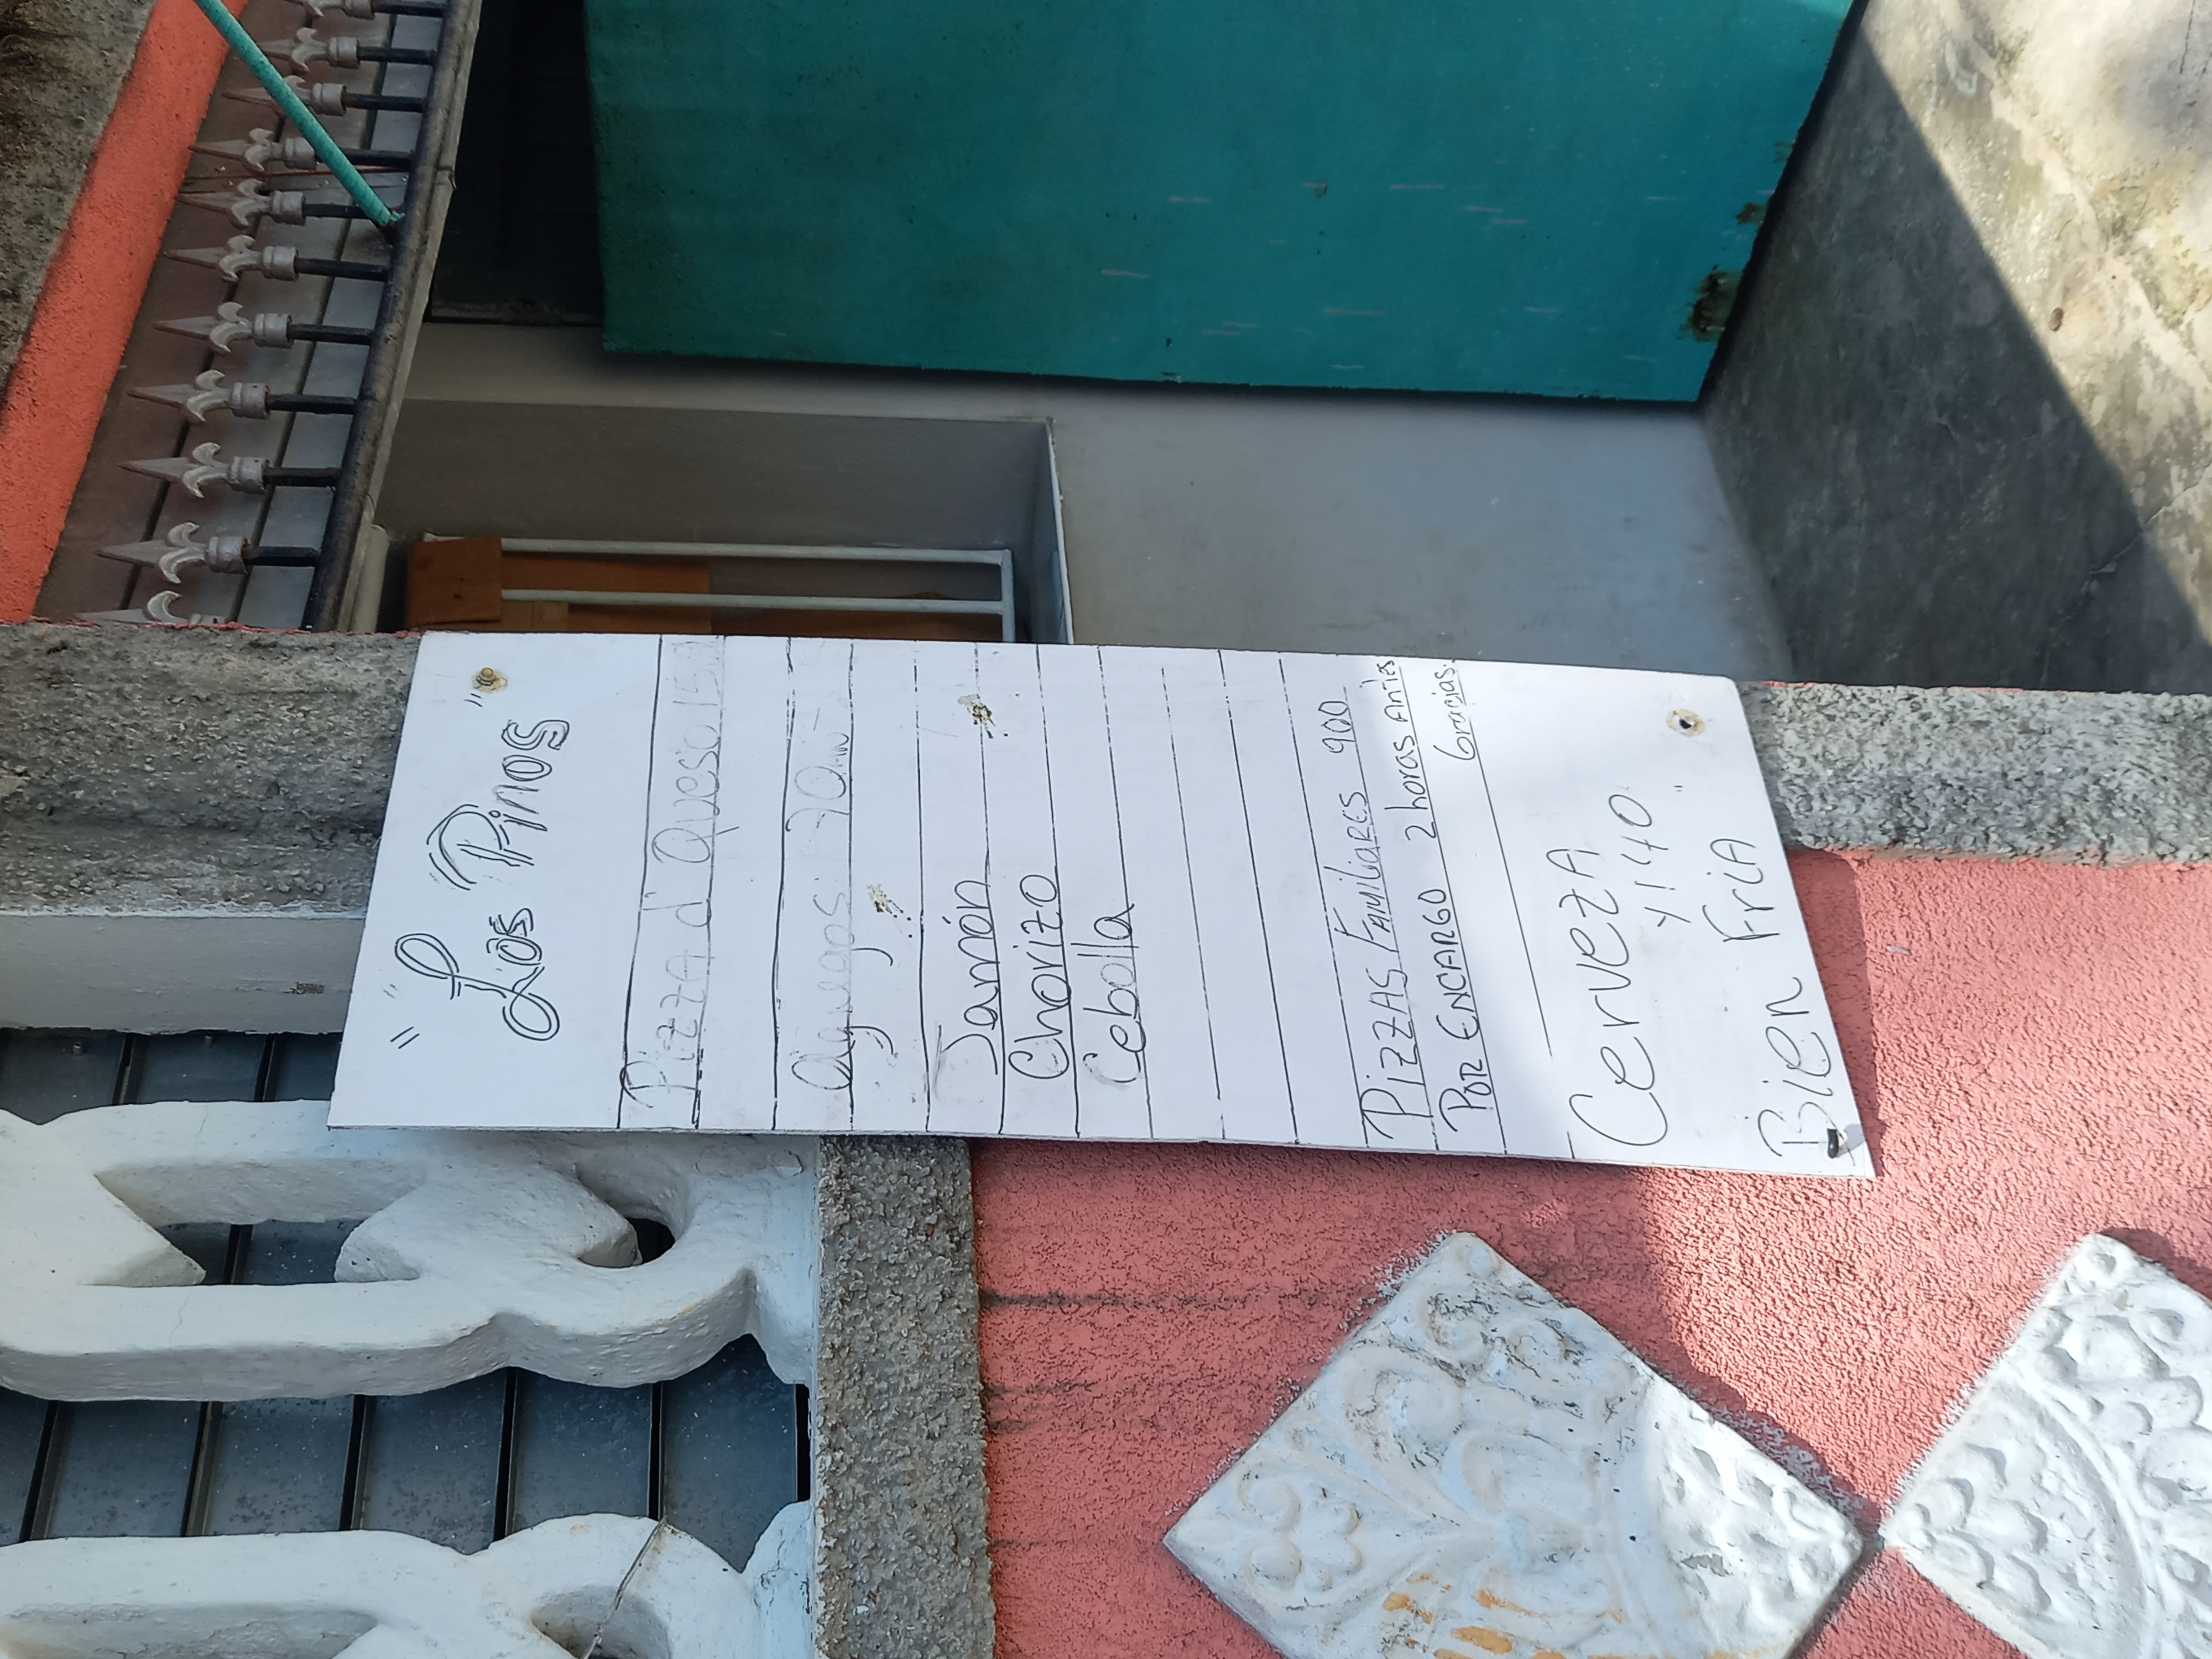 "Los Pinos"
Pizza d' Queso 150
Agregos 70 mn
Jamón
Chorizo
Cebolla
Pizzas Familiares 900
Por Encargo 2 horas Antes
Gracias.
Cerveza
140
Bien Fria